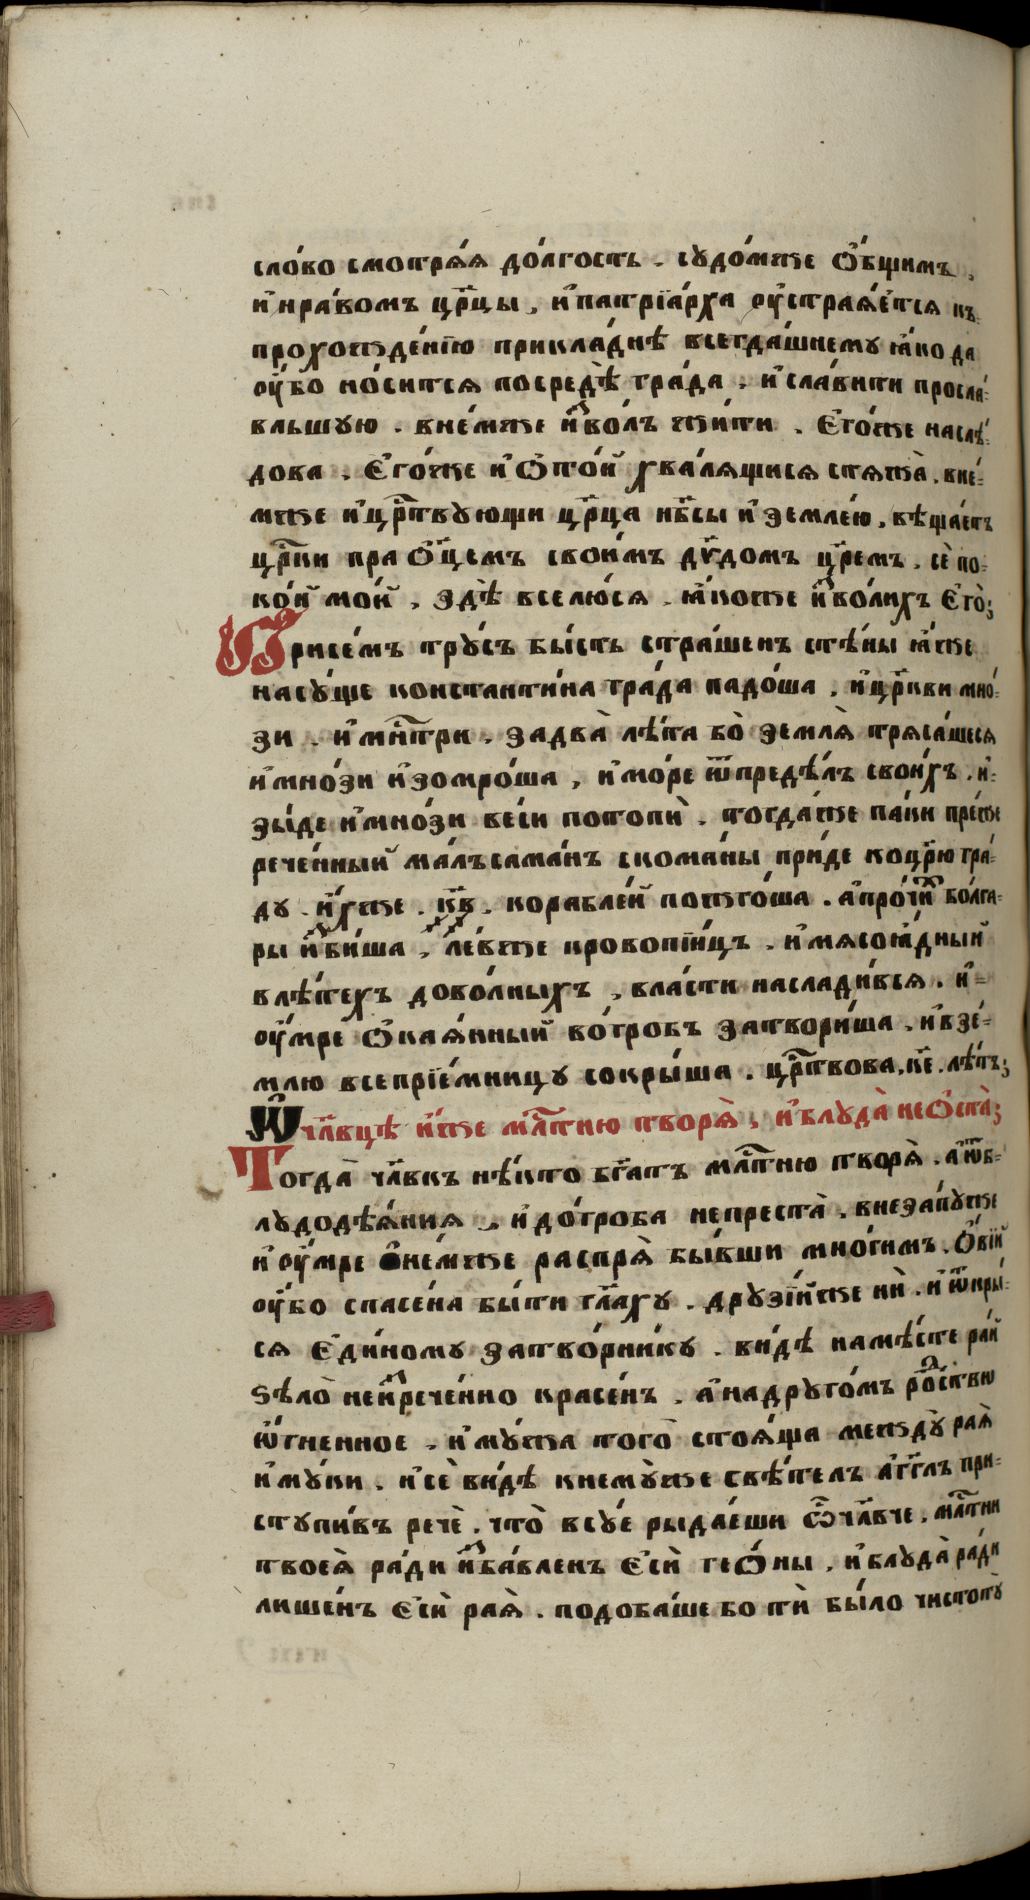 сло́во смотрѧ́ѧ до́лгость . сꙋдо́мже о҆́бщимъ ,
и҆нра́вомъ цр҃цы , и҆патрїа́рха ᲂу҆страѧ́етсѧ къ
прохожде́нїю прикла́днѣ всегда́шнему ꙗ҆́ко да
ᲂу҆́бо но́ситсѧ посредѣ̀ гра́да , и҆сла́вити просла́-
вльшую . вне́мже и҆зво́лъ жи́ти . є҆го́же наслѣ́-
дова . є҆го́же и҆ѻ҆то́й хва́лѧщисѧ стѧжа̀ . вне́-
мже и҆црⷭ҇твꙋющи цр҃ца нб҃сы и҆землею , вѣща́етъ
цр҃ки праѻ҆ц҃емъ свои́мъ дв҃домъ цр҃емъ . сѐ по-
ко́й мо́й , здѣ̀ вселю́сѧ . ꙗ҆́коже и҆зво́лихъ є҆го̀ ;
Присе́мъ трꙋ́съ бы́сть стра́шенъ стѣ́ны ꙗ҆́же
насꙋ́ще константи́на гра́да падо́ша , и҆цр҃кви мно́-
зи . и҆мнⷭ҇три . задва̀ лѣ́та бо̀ землѧ̀ трѧса́шесѧ
и҆мно́зи и҆зомро́ша , и҆мо́ре ѿпредѣ́лъ свои́хъ . и҆-
зы́де и҆мно́зи ве́си потопѝ . тогда́же па́ки пре́же
рече́нный ма́лъсама́нъ скома́ны прі́де коцр҃ю гра́-
дꙋ . и҆́хже . к҃в . корабле́й пожго́ша . а҆про́чїих бо́лга-
ры и҆зби́ша , ле́вже кровопі́йцъ . и҆мѧсоꙗ҆́дный
влѣ́техъ дово́лныхъ , вла́сти наслади́всѧ . и҆-
ᲂу҆́мре ѻ҆каѧ́нный во́гробъ затвори́ша . и҆взе́-
млю всепрїе́мницꙋ сокры́ша . црⷭ҇твова . к҃е . лѣ́тъ ;
Ѡ҆чл҃вцѣ и҆́же млⷭ҇тню творѧ̀ , и҆блꙋда̀ неѻ҆ста̀ ;
Тогда̀ чл҃вкъ нѣ́кто бг҃атъ млⷭ҇тню творѧ̀ . а҆ѿб-
лꙋдодѣ́ѧниѧ , и҆до́гроба непреста̀ . внеза́пꙋже
и҆ᲂу҆́мре ѻ҆не́мже распрѧ̀ бы́вши мно́гимъ . ѻ҆́вїи
ᲂу҆́бо спасе́на бы́ти гл҃ахꙋ . дрꙋзі́йже нѝ . и҆ѿкры́-
сѧ є҆ди́номꙋ затво́рникꙋ . ви́дѣ намѣ́сте ра́й
ѕѣло̀ неи҆зрече́нно красе́нъ . а҆надрꙋго́мъ ро́дство
ѻ҆́гненное . и҆мꙋ́жа того̀ стоѧ́ща междꙋ̀ раѧ̀
и҆мꙋ́ки . и҆сѐ ви́дѣ кнемꙋ́же свѣ́телъ а҆́гг҃лъ при-
стꙋпи́въ речѐ . что̀ всꙋ́е рыда́еши ѽчл҃вче . млⷭ҇тни
твоеѧ̀ ра́ди и҆зба́вленъ є҆сѝ геѻ҆́ны , и҆блꙋда̀ ра́ди
лише́нъ є҆сѝ раѧ̀ . подоба́ше бо тѝ бы́ло чистотꙋ̀